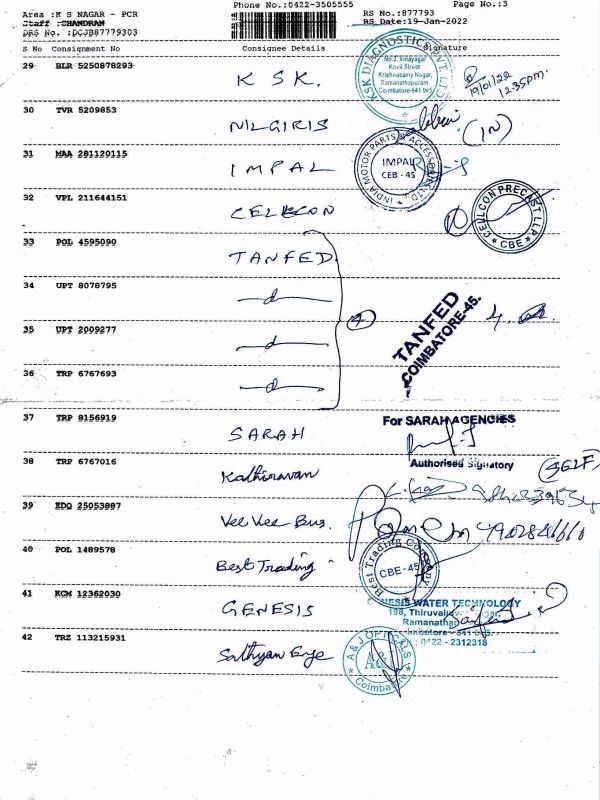 Area :K S NAGAR - PCR
Phone No.:0422-3505555
Page No.:3
Staff :CHANDRAN
RS No.:877793
DRS No. :DCJB87779303
RS Date:19-Jan-2022
S No Consignment No Consignee Details Signature
29 BLR 5250878293 K S K.
KSK DIAGNOSTICS PVT LTD
No.3, Vinayagar
Kovil Street
Krishnasamy Nagar,
Ramanathapuram
Coimbatore-641 045
19/01/22
12:35pm.
30 TVR 5209853 NILGIRIS
(IN)
31 MAA 281120115 IMPAL
INDIA MOTOR PARTS & ACCESSORIES LTD.
IMPAL
CEB - 45
32 VPL 211644151 CELLCON
CELLCON PRECAST LLP
CBE
33 POL 4595090 TANFED
34 UPT 8078795
35 UPT 2009277
36 TRP 6767693
4
TANFED
COIMBATORE-45.
37 TRP 8156919 SARAH
For SARAH AGENCIES
Authorised Signatory
38 TRP 6767016 Kathiravan
39 EDQ 25053887 Vee Vee Bus.
40 POL 1489578 Best Trading
Best Trading Company
CBE-45
41 KCM 12362030 GENESIS
GENESIS WATER TECHNOLOGY
Ramanathap
0422 - 2312318
42 TRZ 113215931 Sathyam Eye
A & J OPTICALS
A&J
Coimbatore